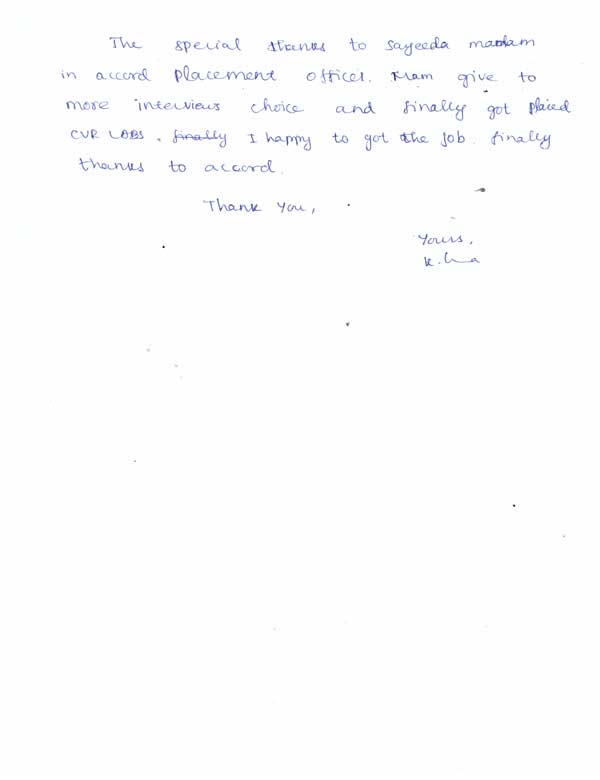 The special thanks to Sayeeda madam
in accord placement officer. Mam give to
more interviews choice and finally got placed
CVR LABS. finally I happy to got the Job. finally
thanks to accord.
Thank You,
Yours,
K.